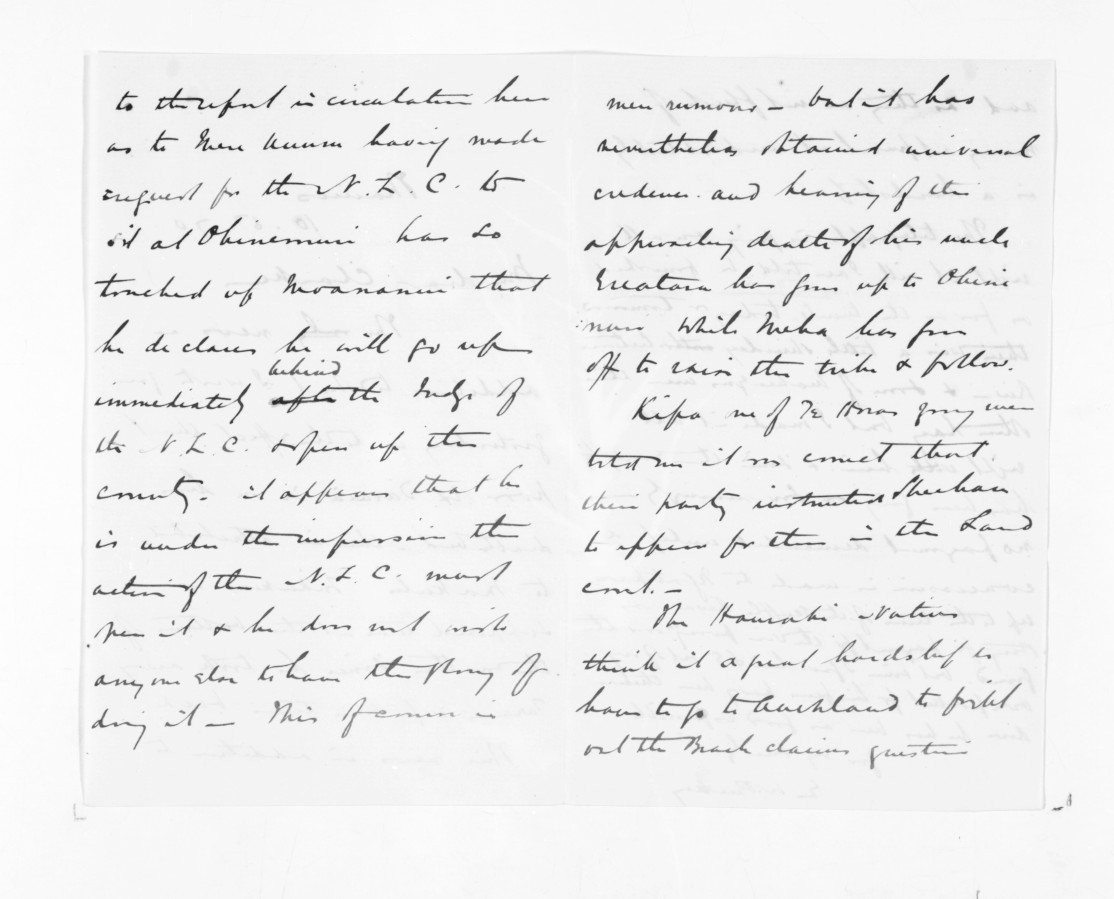 to the report in circulation here
as to Mere Kuru having made
request for the N. L. C. to
sit at Ohinemuri has so
touched up Moananui that
he declares he will go up
immediately behind the Judge of
the N. L. C. & open up the
country - it appears that he
is under the impression the
action of the N. L. C. must
open it & he does not wish
anyone else to have the glory of
doing it - This of course is
mere rumour - but it has
nevertheless obtained universal
credence and hearing of the
approaching death of his uncle
has gone up to Ohine
muri while Meha has gone
off to raise the tribe & follow.
Kipa one of Te Horas young men
told me it was correct that
their party instructed Sheehan
to appear for them in the Land
court. -
The Hauraki Natives
think it a great hardship to
have to go to Auckland to fight
out the Beach claims question